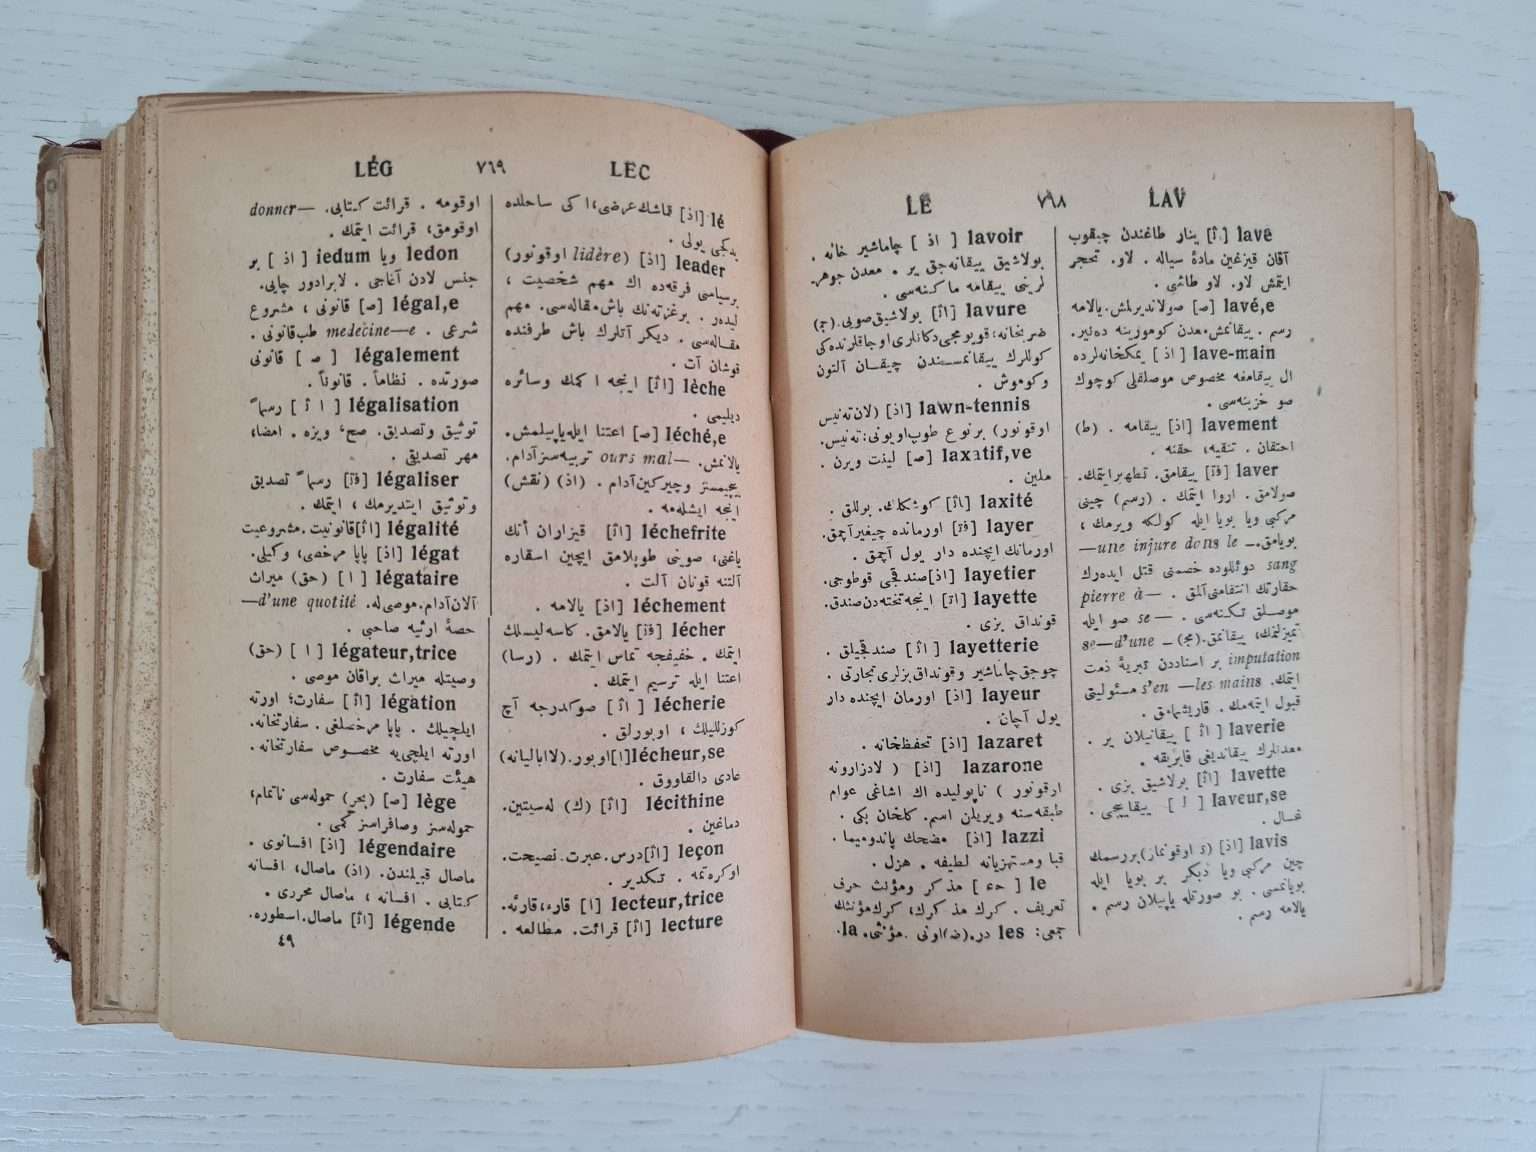 LAV ٧٦٨ LE
lave [اث] ينار طاغندن چيقوب
آقان قيزغين مادهٔ سياله . لاو. تحجر
ايتمش لاو. لاو طاشى .
lavé,e [ص] صولانديرلمش. يالامه
رسم . ييقانمش. معدن كوموزينه دەنير.
lave-main [اذ] يمكخانه لرده
ال ييقامغه مخصوص موصلقلى كوچوك
صو خزينه سى .
lavement [اذ] ييقامه . (ط)
احتقان . تنقيه، حقنه .
laver [فژ] ييقامق. تطهير ايتمك.
صولامق . اروا ايتمك . (رسم) چينى
مركبى ويا بويا ايله كولكه ويرمك ،
بويامق. — une injure dons le
sang دوئللوده خصمنى قتل ايدەرك
حقارتك انتقامنى آلمق . — pierre à
موصلق تكنه سى . — se صو ايله
تميزلنمك، ييقانمق. (مج) — se—d'une
imputation بر اسناددن تبريهٔ ذمت
ايتمك. s'en —les mains مسئوليتى
قبول ايتمەمك . قاريشمامق .
laverie [اث] ييقانيلان ير .
معدنلرك ييقانديغى فابريقه .
lavette [اث] بولاشيق بزى .
laveur,se [ا] ييقاييجى .
غسال .
lavis [اذ] (s اوقونماز) بر رسمك
چين مركبى ويا ديكر بر بويا ايله
بويانمسى . بو صورتله ياپيلان رسم .
يالامه رسم .
lavoir [اذ] چاماشير خانه .
بولاشيق ييقانه جق ير . معدن جوهر
لرينى ييقامه ماكنه سى .
lavure [اث] بولاشيق صويى. (ج)
ضربخانه، قويومجى دكانلرى اوجاقلرنده كى
كوللرك ييقانمسندن چيقان آلتون
وكوموش .
lawn-tennis [اذ] (لان تەنيس
اوقونور) بر نوع طوپ اويونى: تەنيس.
laxatif,ve [ص] لينت ويرن .
ملين .
laxité [اث] كوشكلك. بوللق .
layer [فژ] اورمانده چيغير آچمق.
اورمانك ايچنده دار يول آچمق .
layetier [اذ] صندقجى قوطوجى.
layette [اث] اينجه تخته دن صندق.
قونداق بزى .
layetterie [اث] صندقجيلق .
چوجق چاماشير وقونداق بزلرى تجارتى .
layeur [اذ] اورمان ايچنده دار
يول آچان .
lazaret [اذ] تحفظخانه .
lazarone [اذ] ( لادزارونه
اوقونور ) ناپوليده اك اشاغى عوام
طبقه سنه ويريلن اسم. كلخان بكى .
lazzi [اذ] مضحك پاندوميما .
قبا ومستهزيانه لطيفه . هزل .
le [حء] مذكر ومؤنث حرف
تعريف . كرك مذكرك، كرك مؤنثك
جمعى: les در. (ض) اونى . مؤنثى. la.
LEC ٧٦٩ LÉG
lé [اذ] قماشك عرضى، ا كى ساحلده
يه كجى يولى .
leader [اذ] (lidère اوقونور)
بر سياسى فرقه ده اك مهم شخصيت ،
ليدەر . بر غزته نك باش مقاله سى. مهم
مقاله سى . ديكر آتلرك باش طرفنده
قوشان آت .
lèche [اث] اينجه ا كمك وسائره
ديليمى .
léché,e [ص] اعتنا ايله ياپيلمش.
يالانمش. — ours mal تربيه سز آدام.
بيچيمسز وچيركين آدام . (اذ) (نقش)
اينجه ايشلەمه .
léchefrite [اث] قيزاران أتك
ياغنى، صوينى طوپلامق ايچين اسقاره
آلتنه قونان آلت .
léchement [اذ] يالامه .
lécher [فژ] يالامق. كاسه ليسلك
ايتمك . خفيفجه تماس ايتمك . (رسا)
اعتنا ايله ترسيم ايتمك .
lécherie [اث] صوكدرجه آچ
كوزليلك ، اوبورلق .
lécheur,se [ا] اوبور. (لاابالیانه)
عادى دالقاووق .
lécithine [اث] (ك) لەسيتين.
دماغين .
leçon [اث] درس. عبرت. نصيحت.
اوكرەتمه . تكدير .
lecteur,trice [ا] قارء، قارئه.
lecture [اث] قرائت. مطالعه .
اوقومه . قرائت كتابى. — donner
اوقومق، قرائت ايتمك .
ledon ويا iedum [اذ] بر
جنس لادن آغاجى . لابرادور چايى.
légal,e [ص] قانونى ، مشروع
شرعى . medecine—e طب قانونى .
légalement [ص] قانونى
صورتده . نظاماً . قانوناً .
légalisation [اث] رسماً
توثيق وتصديق. صح، ويزه . امضا،
مهر تصديقى .
légaliser [فژ] رسماً تصديق
وتوثيق ايتديرمك ، ايتمك.
légalité [اث] قانونيت. مشروعيت
légat [اذ] پاپا مرخصى، وكيلى.
légataire [ا] (حق) ميراث
آلان آدام. موصى له. —d'une quotité
حصهٔ ارثيه صاحبى .
légateur,trice [ا] (حق)
وصيتله ميراث براقان موصى .
légation [اث] سفارت؛ اورته
ايلچيلك. پاپا مرخصلغى . سفارتخانه.
اورته ايلچى يه مخصوص سفارتخانه.
هيئت سفارت .
lège [ص] (بحر) حموله سى ناتمام،
حموله سز وصافراسز كمى .
légendaire [اذ] افسانوى .
ماصال قبيلندن. (اذ) ماصال، افسانه
كتابى . افسانه ، ماصال محررى .
légende [اث] ماصال. اسطوره.
٤٩